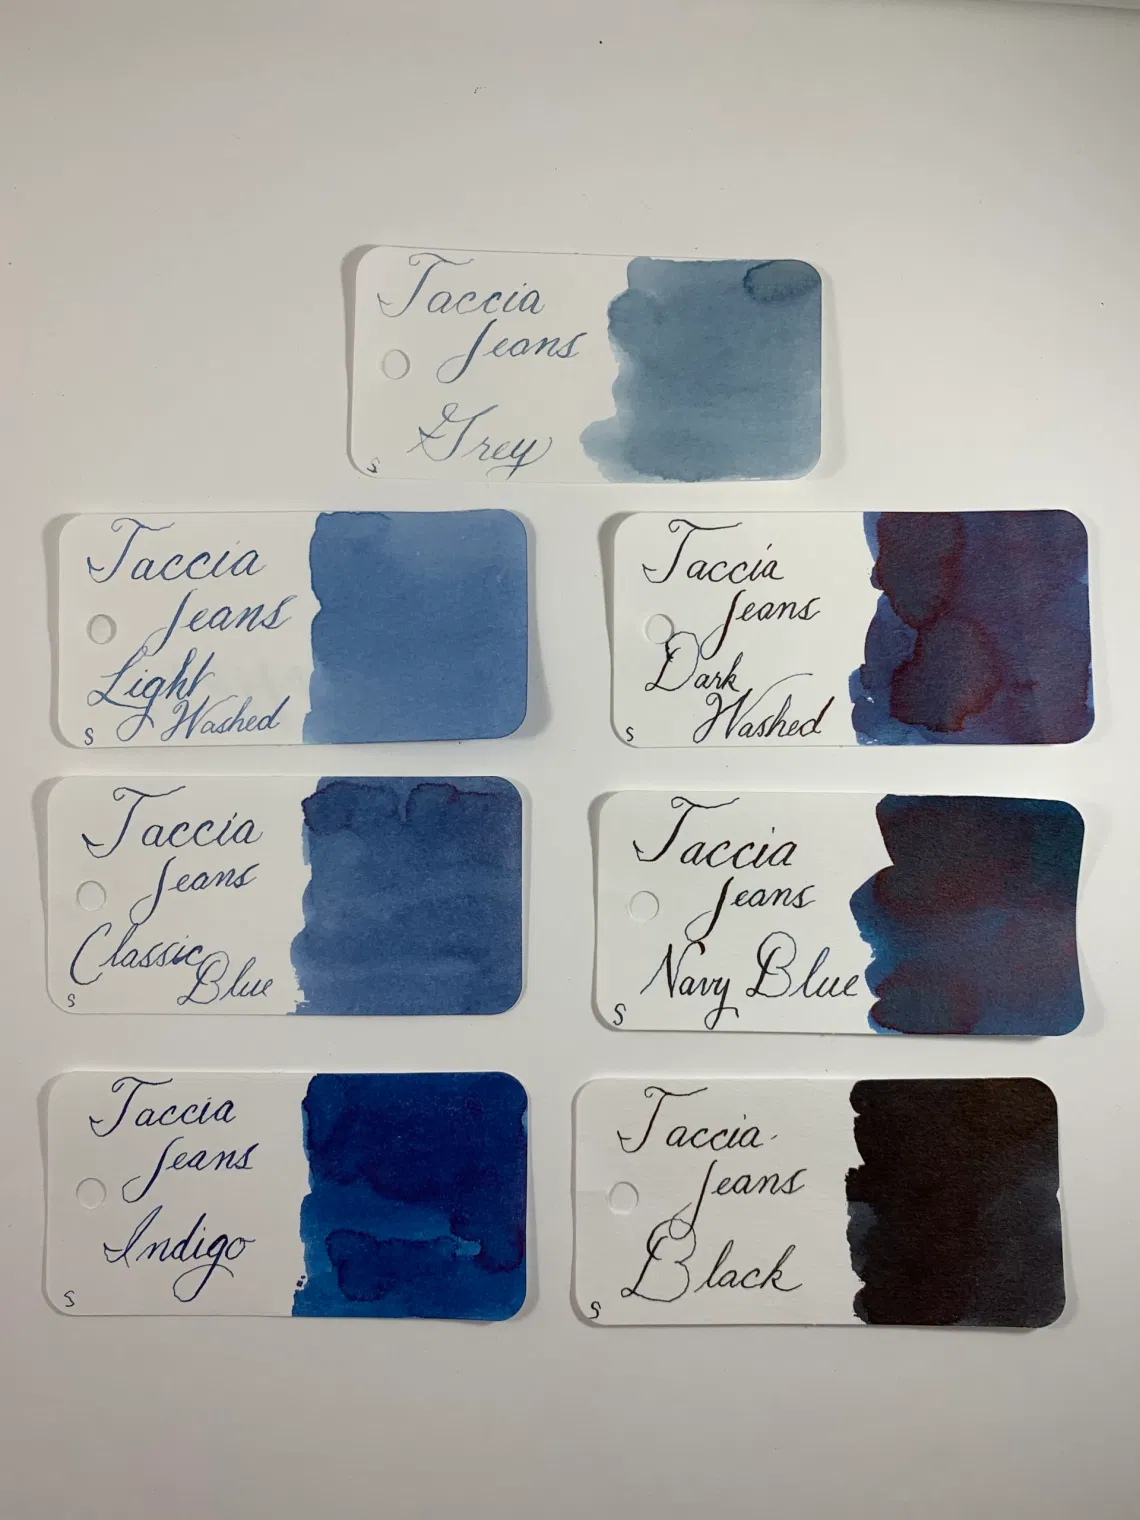 Taccia
Jeans
Grey
S
Taccia
Jeans
Light
Washed
S
Taccia
Jeans
Dark
Washed
S
Taccia
Jeans
Classic
Blue
S
Taccia
Jeans
Navy Blue
S
Taccia
Jeans
Indigo
S
Taccia
Jeans
Black
S